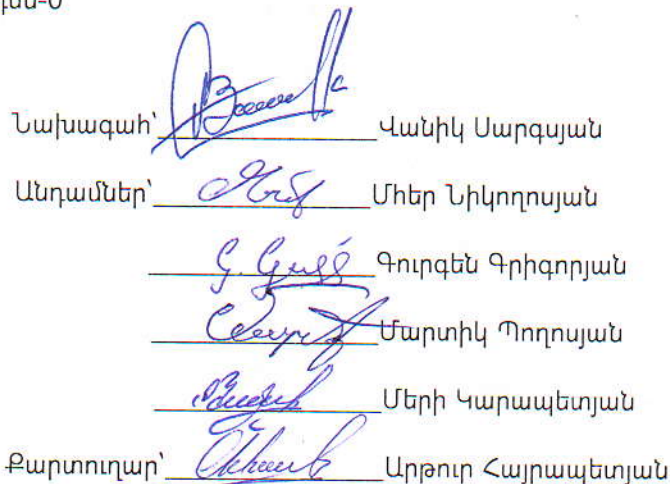 Նախագահ՝ Վանիկ Սարգսյան
Անդամներ՝ Մհեր Նիկողոսյան
Գուրգեն Գրիգորյան
Մարտիկ Պողոսյան
Մերի Կարապետյան
Քարտուղար՝ Արթուր Հայրապետյան